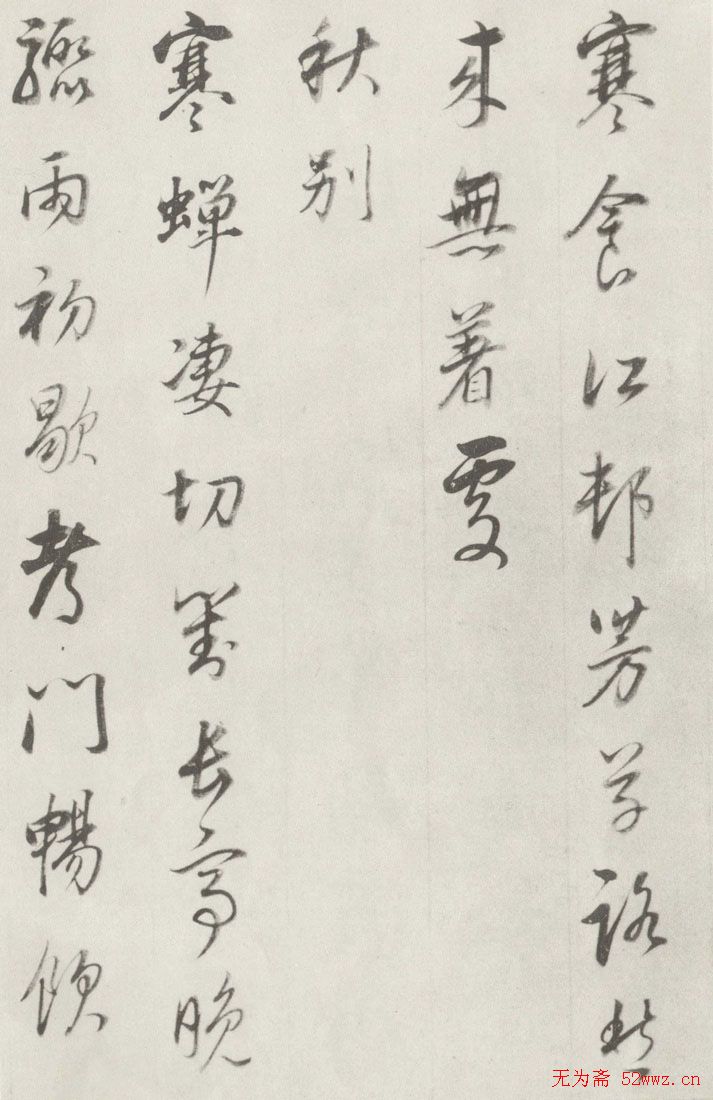 寒食江邨芳草路愁
来無著處
秋别
寒蟬凄切對長亭晚
驟雨初歇門暢飲
无为斋 52wwz.cn